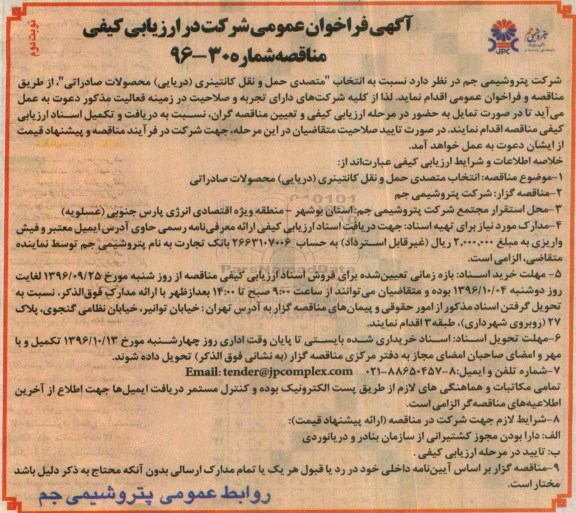 آگهی فراخوان عمومی شرکت در ارزیابی کیفی
مناقصه شماره ۳۰-۹۶
نوبت دوم
JPC
شرکت پتروشیمی جم در نظر دارد نسبت به انتخاب "متصدی حمل و نقل کانتینری (دریایی) محصولات صادراتی"، از طریق
مناقصه و فراخوان عمومی اقدام نماید. لذا از کلیه شرکت‌های دارای تجربه و صلاحیت در زمینه فعالیت مذکور دعوت به عمل
می‌آید تا در صورت تمایل به حضور در مرحله ارزیابی کیفی و تعیین مناقصه گران، نسبت به دریافت و تکمیل اسناد ارزیابی
کیفی مناقصه اقدام نمایند. در صورت تایید صلاحیت متقاضیان در این مرحله، جهت شرکت در فرآیند مناقصه و پیشنهاد قیمت
از ایشان دعوت به عمل خواهد آمد.
خلاصه اطلاعات و شرایط ارزیابی کیفی عبارت‌اند از:
۱-موضوع مناقصه: انتخاب متصدی حمل و نقل کانتینری (دریایی) محصولات صادراتی
۲-مناقصه گزار: شرکت پتروشیمی جم
۳-محل استقرار مجتمع شرکت پتروشیمی جم: استان بوشهر - منطقه ویژه اقتصادی انرژی پارس جنوبی (عسلویه)
۴-مدارک مورد نیاز برای تهیه اسناد: جهت دریافت اسناد ارزیابی کیفی ارائه معرفی‌نامه رسمی حاوی آدرس ایمیل معتبر و فیش
واریزی به مبلغ ۲,۰۰۰,۰۰۰ ریال (غیرقابل استرداد) به حساب ۲۶۶۳۱۰۷۰۰۶ بانک تجارت به نام پتروشیمی جم توسط نماینده
متقاضی، الزامی است.
۵- مهلت خرید اسناد: بازه زمانی تعیین‌شده برای فروش اسناد ارزیابی کیفی مناقصه از روز شنبه مورخ ۱۳۹۶/۰۹/۲۵ لغایت
روز دوشنبه ۱۳۹۶/۱۰/۰۴ بوده و متقاضیان می‌توانند از ساعت ۹:۰۰ صبح تا ۱۴:۰۰ بعدازظهر با ارائه مدارک فوق‌الذکر، نسبت به
تحویل گرفتن اسناد مذکور از امور حقوقی و پیمان‌های مناقصه گزار به آدرس تهران: خیابان توانیر، خیابان نظامی گنجوی، پلاک
۲۷ (روبروی شهرداری)، طبقه ۳ اقدام نمایند.
۶-مهلت تحویل اسناد: اسناد خریداری شده بایستی تا پایان وقت اداری روز چهارشنبه مورخ ۱۳۹۶/۱۰/۱۳ تکمیل و با
مهر و امضای صاحبان امضای مجاز به دفتر مرکزی مناقصه گزار (به نشانی فوق الذکر) تحویل داده شوند.
۷-شماره تلفن و ایمیل: ۸-۸۸۶۵۰۴۵۷-۰۲۱ Email: tender@jpcomplex.com
تمامی مکاتبات و هماهنگی های لازم از طریق پست الکترونیک بوده و کنترل مستمر دریافت ایمیل‌ها جهت اطلاع از آخرین
اطلاعیه‌های مناقصه‌گر الزامی است.
۸-شرایط لازم جهت شرکت در مناقصه (ارائه پیشنهاد قیمت):
الف: دارا بودن مجوز کشتیرانی از سازمان بنادر و دریانوردی
ب: تایید در مرحله ارزیابی کیفی.
۹-مناقصه گزار بر اساس آیین‌نامه داخلی خود در رد یا قبول هر یک یا تمام مدارک ارسالی بدون آنکه محتاج به ذکر دلیل باشد
مختار است.
روابط عمومی پتروشیمی جم